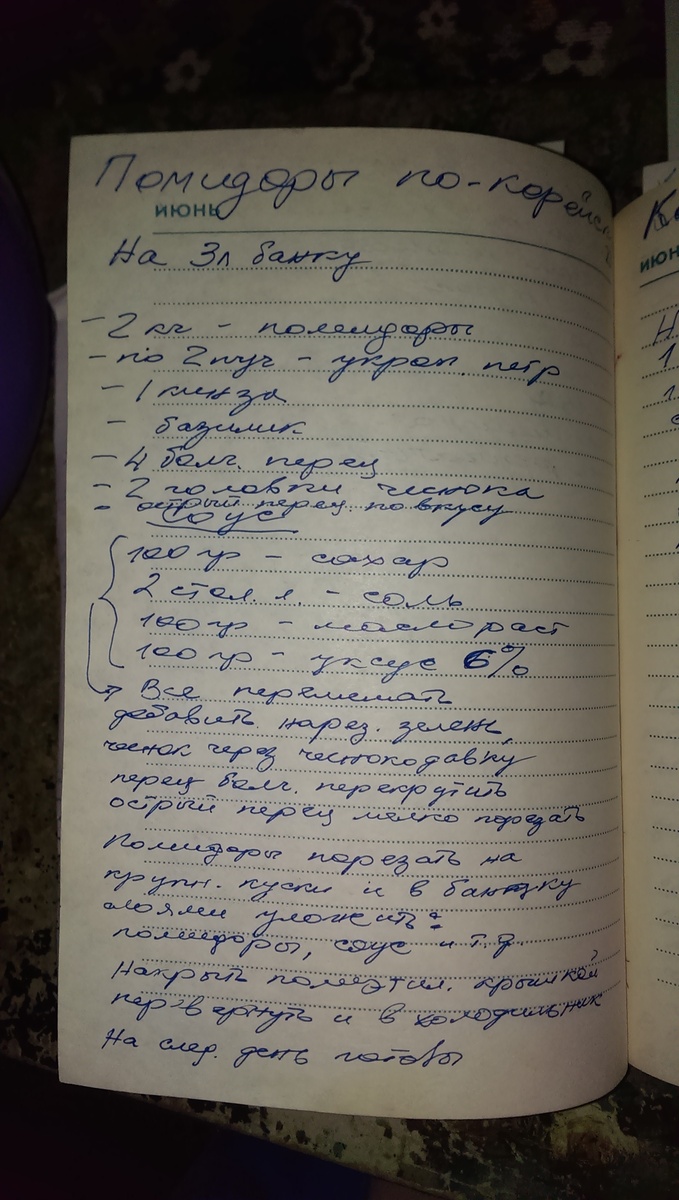 Помидоры по-корейск
ИЮНЬ
На 3л банку
- 2 кг - помидоры
- по 2 пуч - укроп. петр
- 1 кинза
- базилик
- 4 болг. перец
- 2 головки чеснока
- острый перец по вкусу
Соус
100 гр - сахар
2 стол. л. - соль
100 гр - масло раст
100 гр - уксус 6%
→ Все перемешать
добавить нарез. зелень,
чеснок через чеснокодавку
перец болг. перекрутить
острый перец мелко порезать
Помидоры порезать на
крупн. куски и в банку
слоями уложить:
помидоры, соус и т.д.
Накрыть полиэтил. крышкой
перевернуть и в холодильник
На след. день готовы
К
ИЮН
Н
1
1